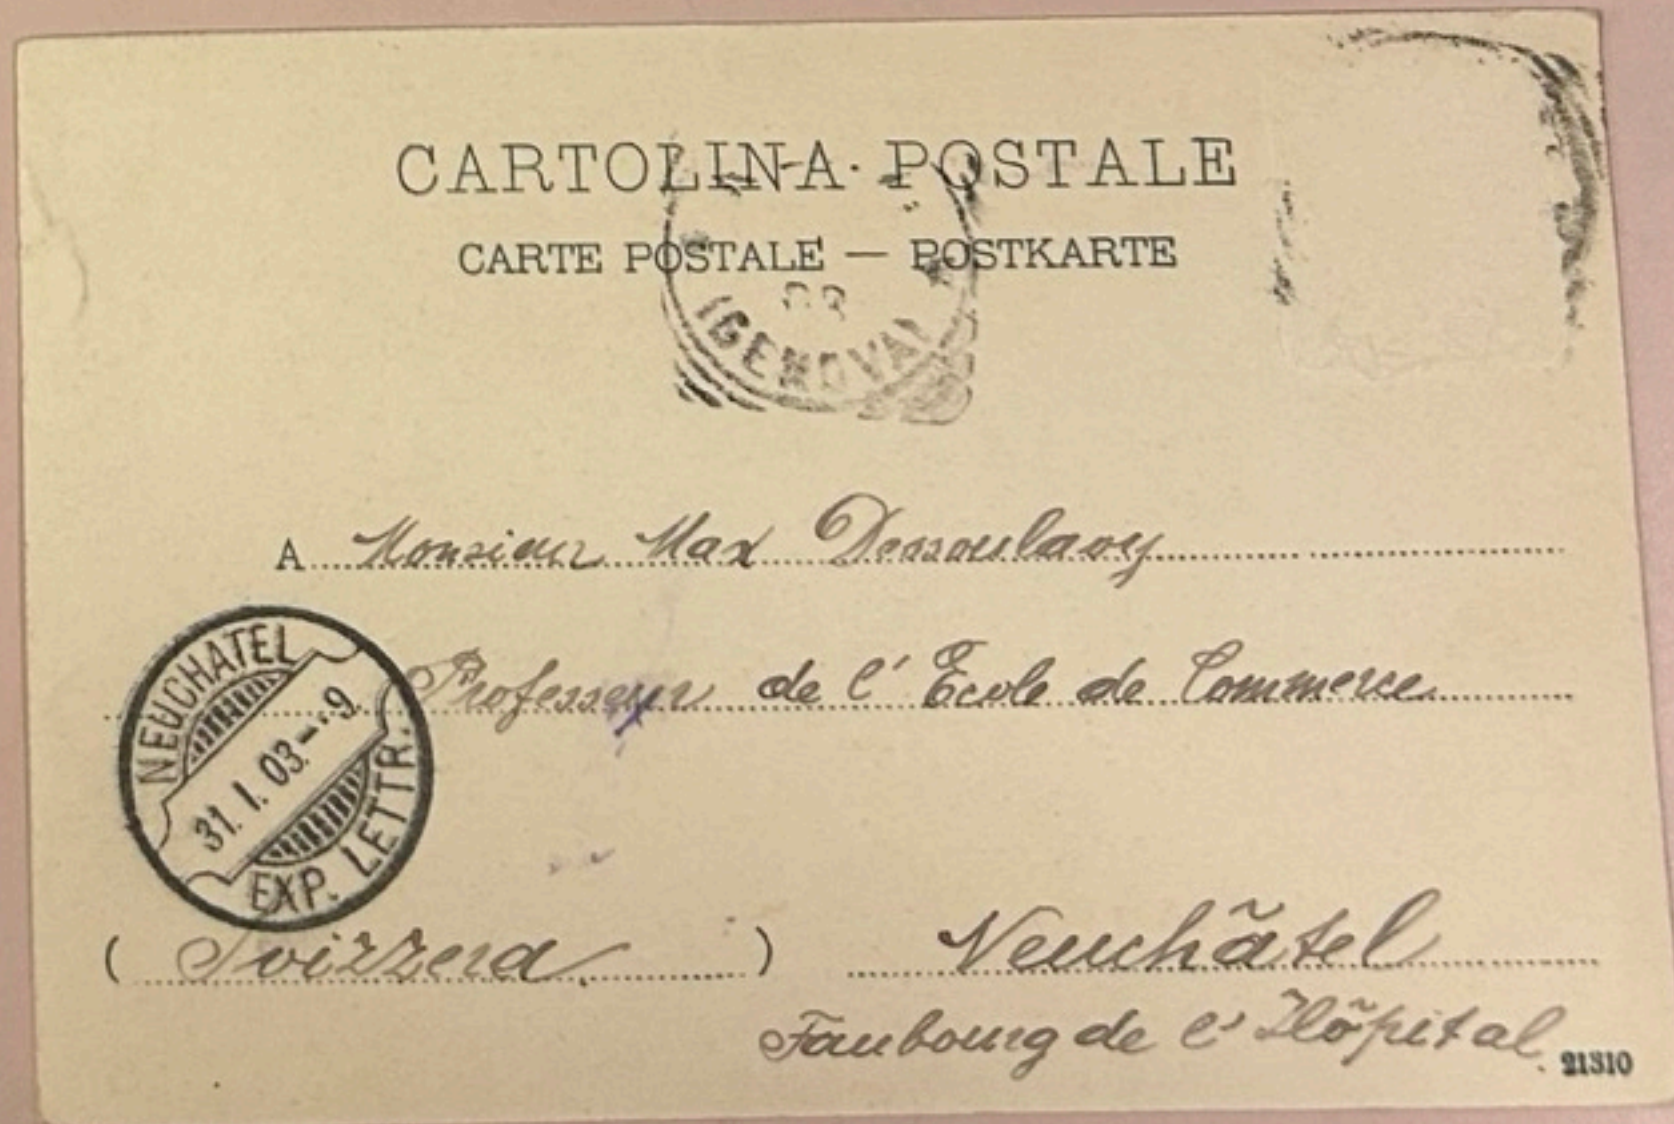 CARTOLINA POSTALE
CARTE POSTALE — POSTKARTE
(GENOVA)
A Monsieur Max Dessoulavy
Professeur de l' Ecole de Commerce
NEUCHATEL
31. I. 03.–9.
EXP. LETTR.
( Svizzera ) Neuchâtel
Faubourg de l' Hôpital
21310